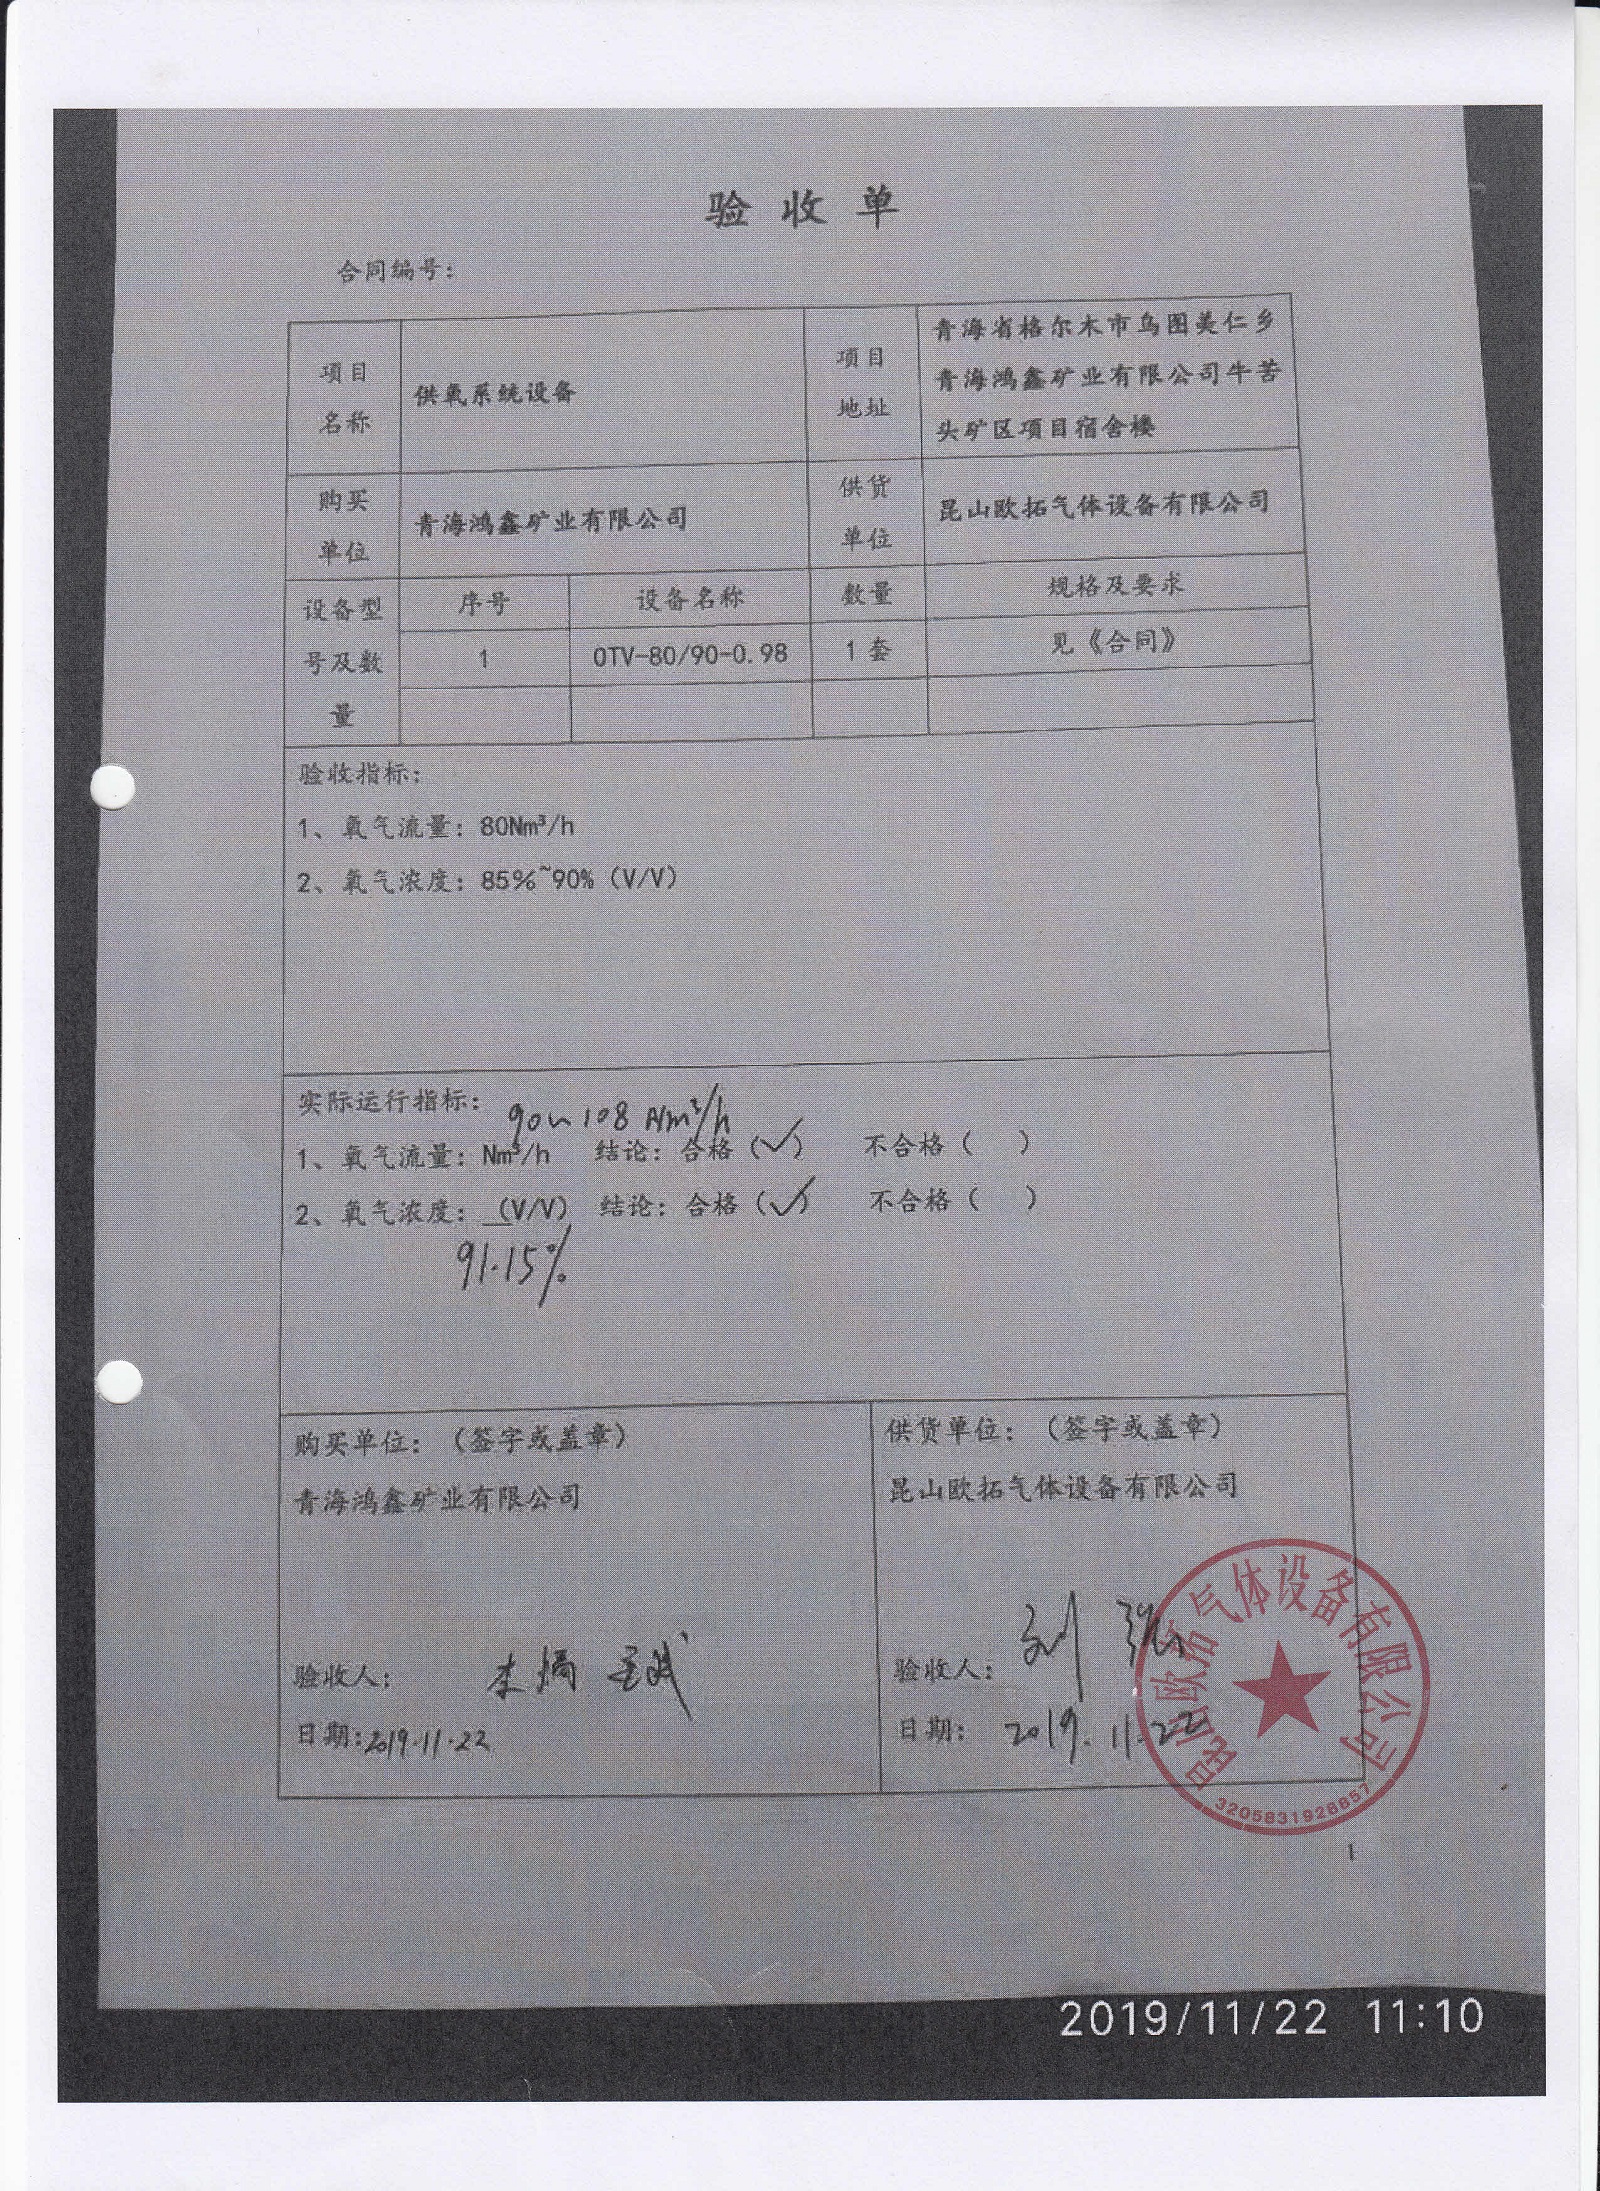 验收单
合同编号：
项目
名称
供氧系统设备
项目
地址
青海省格尔木市乌图美仁乡
青海鸿鑫矿业有限公司牛苦
头矿区项目宿舍楼
购买
单位
青海鸿鑫矿业有限公司
供货
单位
昆山欧拓气体设备有限公司
设备型
号及数
量
序号
设备名称
数量
规格及要求
1
OTV-80/90-0.98
1 套
见《合同》
验收指标：
1、氧气流量：80Nm³/h
2、氧气浓度：85%~90%（V/V）
实际运行指标：
90~108 Nm³/h
1、氧气流量：Nm³/h 结论：合格（✓） 不合格（ ）
2、氧气浓度：＿(V/V) 结论：合格（✓） 不合格（ ）
91.15%
购买单位：（签字或盖章）
青海鸿鑫矿业有限公司
验收人：
日期：2019.11.22
供货单位：（签字或盖章）
昆山欧拓气体设备有限公司
验收人：刘
日期：2019.11.22
昆山欧拓气体设备有限公司
3205831926657
1
2019/11/22 11:10